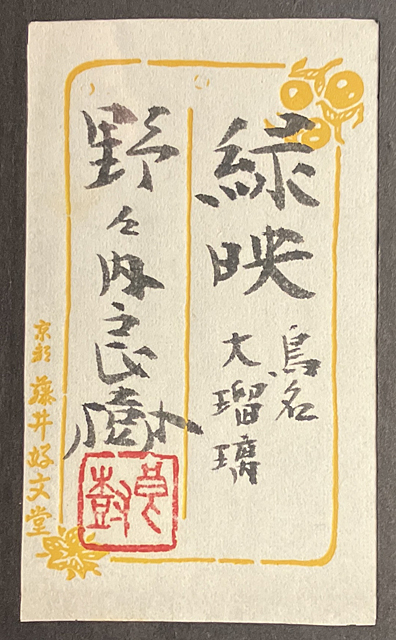 緑映
鳥名
大瑠璃
野々内良樹
良樹
京都 藤井好文堂